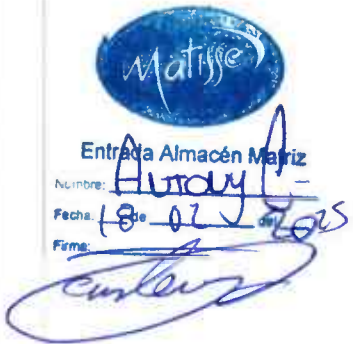 Matisse
Entrada Almacén Matriz
Nombre:
Fecha: 18 de 02 de 2025
Firma: